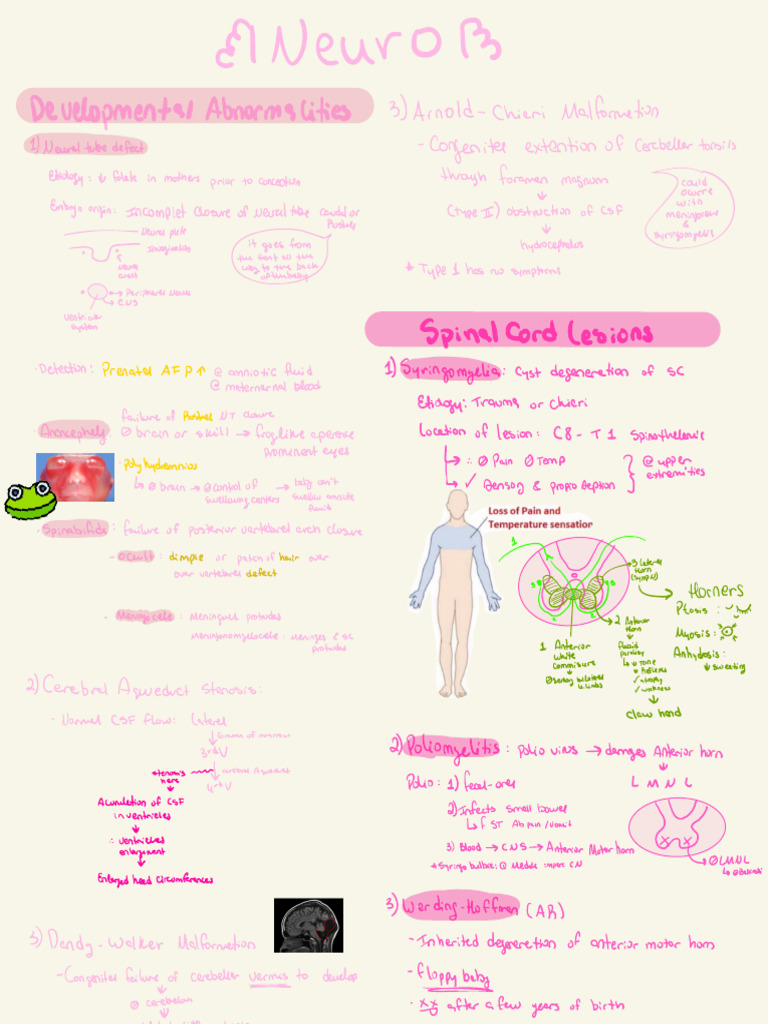 Neuro
Developmental Abnormalities
1) Neural tube defect
Etiology: ↓ folate in mothers prior to conception
Embryo origin: Incomplet closure of Neural tube caudal or
Neural plate
it goes from
the front all the
way to the back
of the baby
Neural
crest
→ Peripheral Nerves
→ CNS
Ventricular
system
· Detection: Prenatal AFP ↑ @ amniotic fluid
@ maternernal blood
failure of NT closure
· Anencephely Ø brain or skull → froglike aperense
prominent eyes
· Polyhydramnios
↳ Ø brain → Ø control of → baby can't
swallowing centers swallow amniotic
fluid
· Spinabifida: failure of posterior vertebral arch closure
- Ocult: dimple or patch of hair over
over vertebral defect
· Meningocele: Meninges protrudes
Meningomyelocele: Meninges & SC
protrudes
2) Cerebral Aqueduct Stenosis:
- Normal CSF flow: lateral
3rd V
stenosis
here
cerebral Aqueduct
4th V
Acumulation of CSF
in ventricles
∴ ventricles
enlargement
Enlarged head circumferences
3) Dandy-Walker Malformation
- Congenital failure of cerebellar vermus to develop
Ø cerebellum
3) Arnold-Chieri Malformation
- Congenital extention of cerebellar tonsils
through foramen magnum
(type II) obstruction of CSF
hydocephalus
* Type 1 has no symptoms
could
ocurre
with
&
syringomyeli
Spinal Cord Lesions
1) Syringomyelia: Cyst degeneretion of SC
Etiology: Trauma or Chieri
Location of lesion: C8 - T1 Spinothelamic
→ ∴ Ø Pain Ø Temp
→ ✓ Sensory & proprioception
@ upper
extremities
Loss of Pain and
Temperature sensation
1
3 lateral
horn
2 Anterior
horn
1 Anterior
white
commisure
flaccid
paralysis
↓ Tone
↓ Reflexes
✓ atrophy
✓ weakness
claw hand
Horners
Ptosis:
Myosis:
Anhydosis:
↓ sweating
2) Poliomyelitis: polio virus → damages Anterior horn
LMNL
Polio: 1) fecal-oral
2) Infects small bowel
↳ ST Ab pain / Vomit
3) Blood → CNS → Anterior Motor horn
x x
3) Werding-Hoffman (AR)
- Inherited degeneretion of anterior motor horn
- floppy baby
· xx after a few years of birth